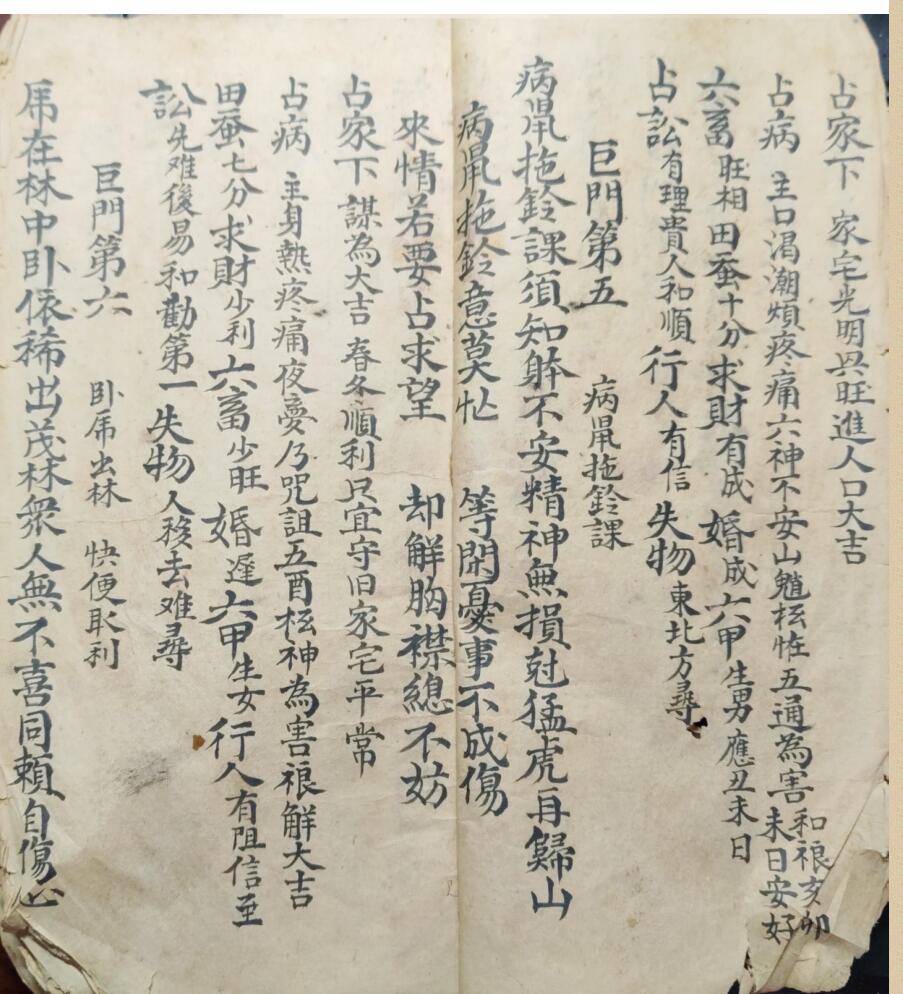 占家下 家宅光明兴旺進人口大吉
占病 主口渴潮煩疼痛六神不安山魈枉恠五通為害和禳亥卯未日安好
六畜旺相田蚕十分求財有成婚成六甲生男應丑未日
占訟有理貴人和順行人有信失物東北方尋
巨門第五 病鼡拖鈴課
病鼡拖鈴課須知躰不安精神無損尅猛虎再歸山
病鼡拖鈴意莫忙 等閑憂事不成傷
來情若要占求望 却解胸襟總不妨
占家下謀為大吉春冬順利只宜守旧家宅平常
占病 主身熱疼痛夜夢乃咒詛五酉枉神為害禳解大吉
田蚕七分求財少利六畜少旺婚遲六甲生女行人有阻信至
訟先难後易和勸第一失物人移去难尋
巨門第六 卧乕出林 快便取利
乕在林中卧依稀出茂林衆人無不喜同賴自傷心